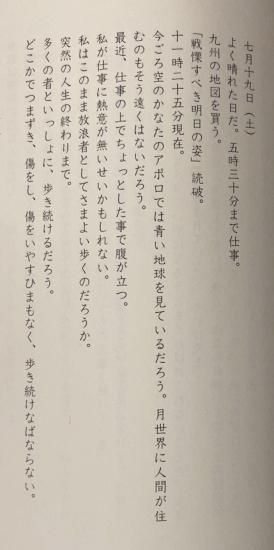 七月十九日（土）
よく晴れた日だ。五時三十分まで仕事。
九州の地図を買う。
「戦慄すべき明日の姿」読破。
十一時二十五分現在。
今ごろ空のかなたのアポロでは青い地球を見ているだろう。月世界に人間が住
むのもそう遠くはないだろう。
最近、仕事の上でちょっとした事で腹が立つ。
私が仕事に熱意が無いせいかもしれない。
私はこのまま放浪者としてさまよい歩くのだろうか。
突然の人生の終わりまで。
多くの者といっしょに、歩き続けるだろう。
どこかでつまずき、傷をし、傷をいやすひまもなく、歩き続けなばならない。